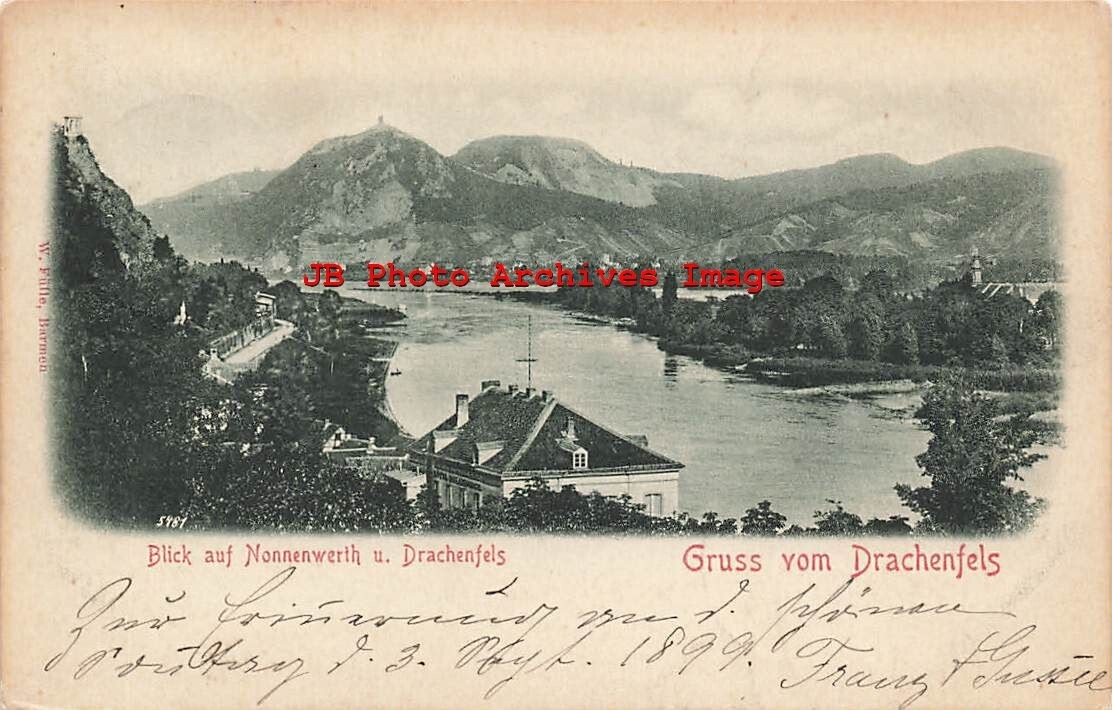 JB Photo Archives Image
W. Fülle, Barmen
5487
Blick auf Nonnenwerth u. Drachenfels
Gruss vom Drachenfels
Zur Erinnerung an d. schönen
Sonntag d. 3. Sept. 1899. Franz